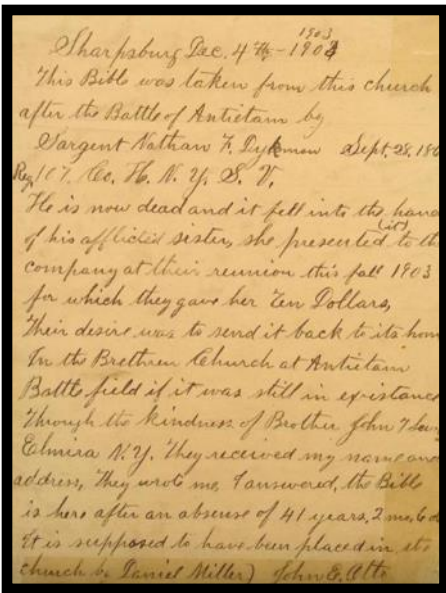 1903
Sharpsburg Dec. 4th - 1903
This Bible was taken from this church
after the Battle of Antietam by
Sargent Nathan F. Dykman Sept. 28, 186
Reg 107. Co. H. N. Y. S. V.
He is now dead and it fell into the hand
(it)
of his afflicted sister, she presented to the
company at their reunion this fall 1903
for which they gave her Ten Dollars,
Their desire was to send it back to its hom
In the Brethren Church at Antietam
Battle field if it was still in existance
Through the kindness of Brother John
Elmira N.Y. They received my name and
address, They wrote me, I answered, the Bible
is here after an absense of 41 years, 2 mo, 6 d
It is supposed to have been placed in
church by Daniel Miller) John E. Otto